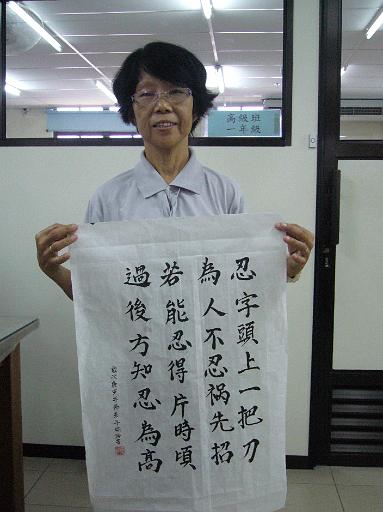 高級班
一年級
忍字頭上一把刀
為人不忍祸先招
若能忍得片時頃
過後方知忍為高